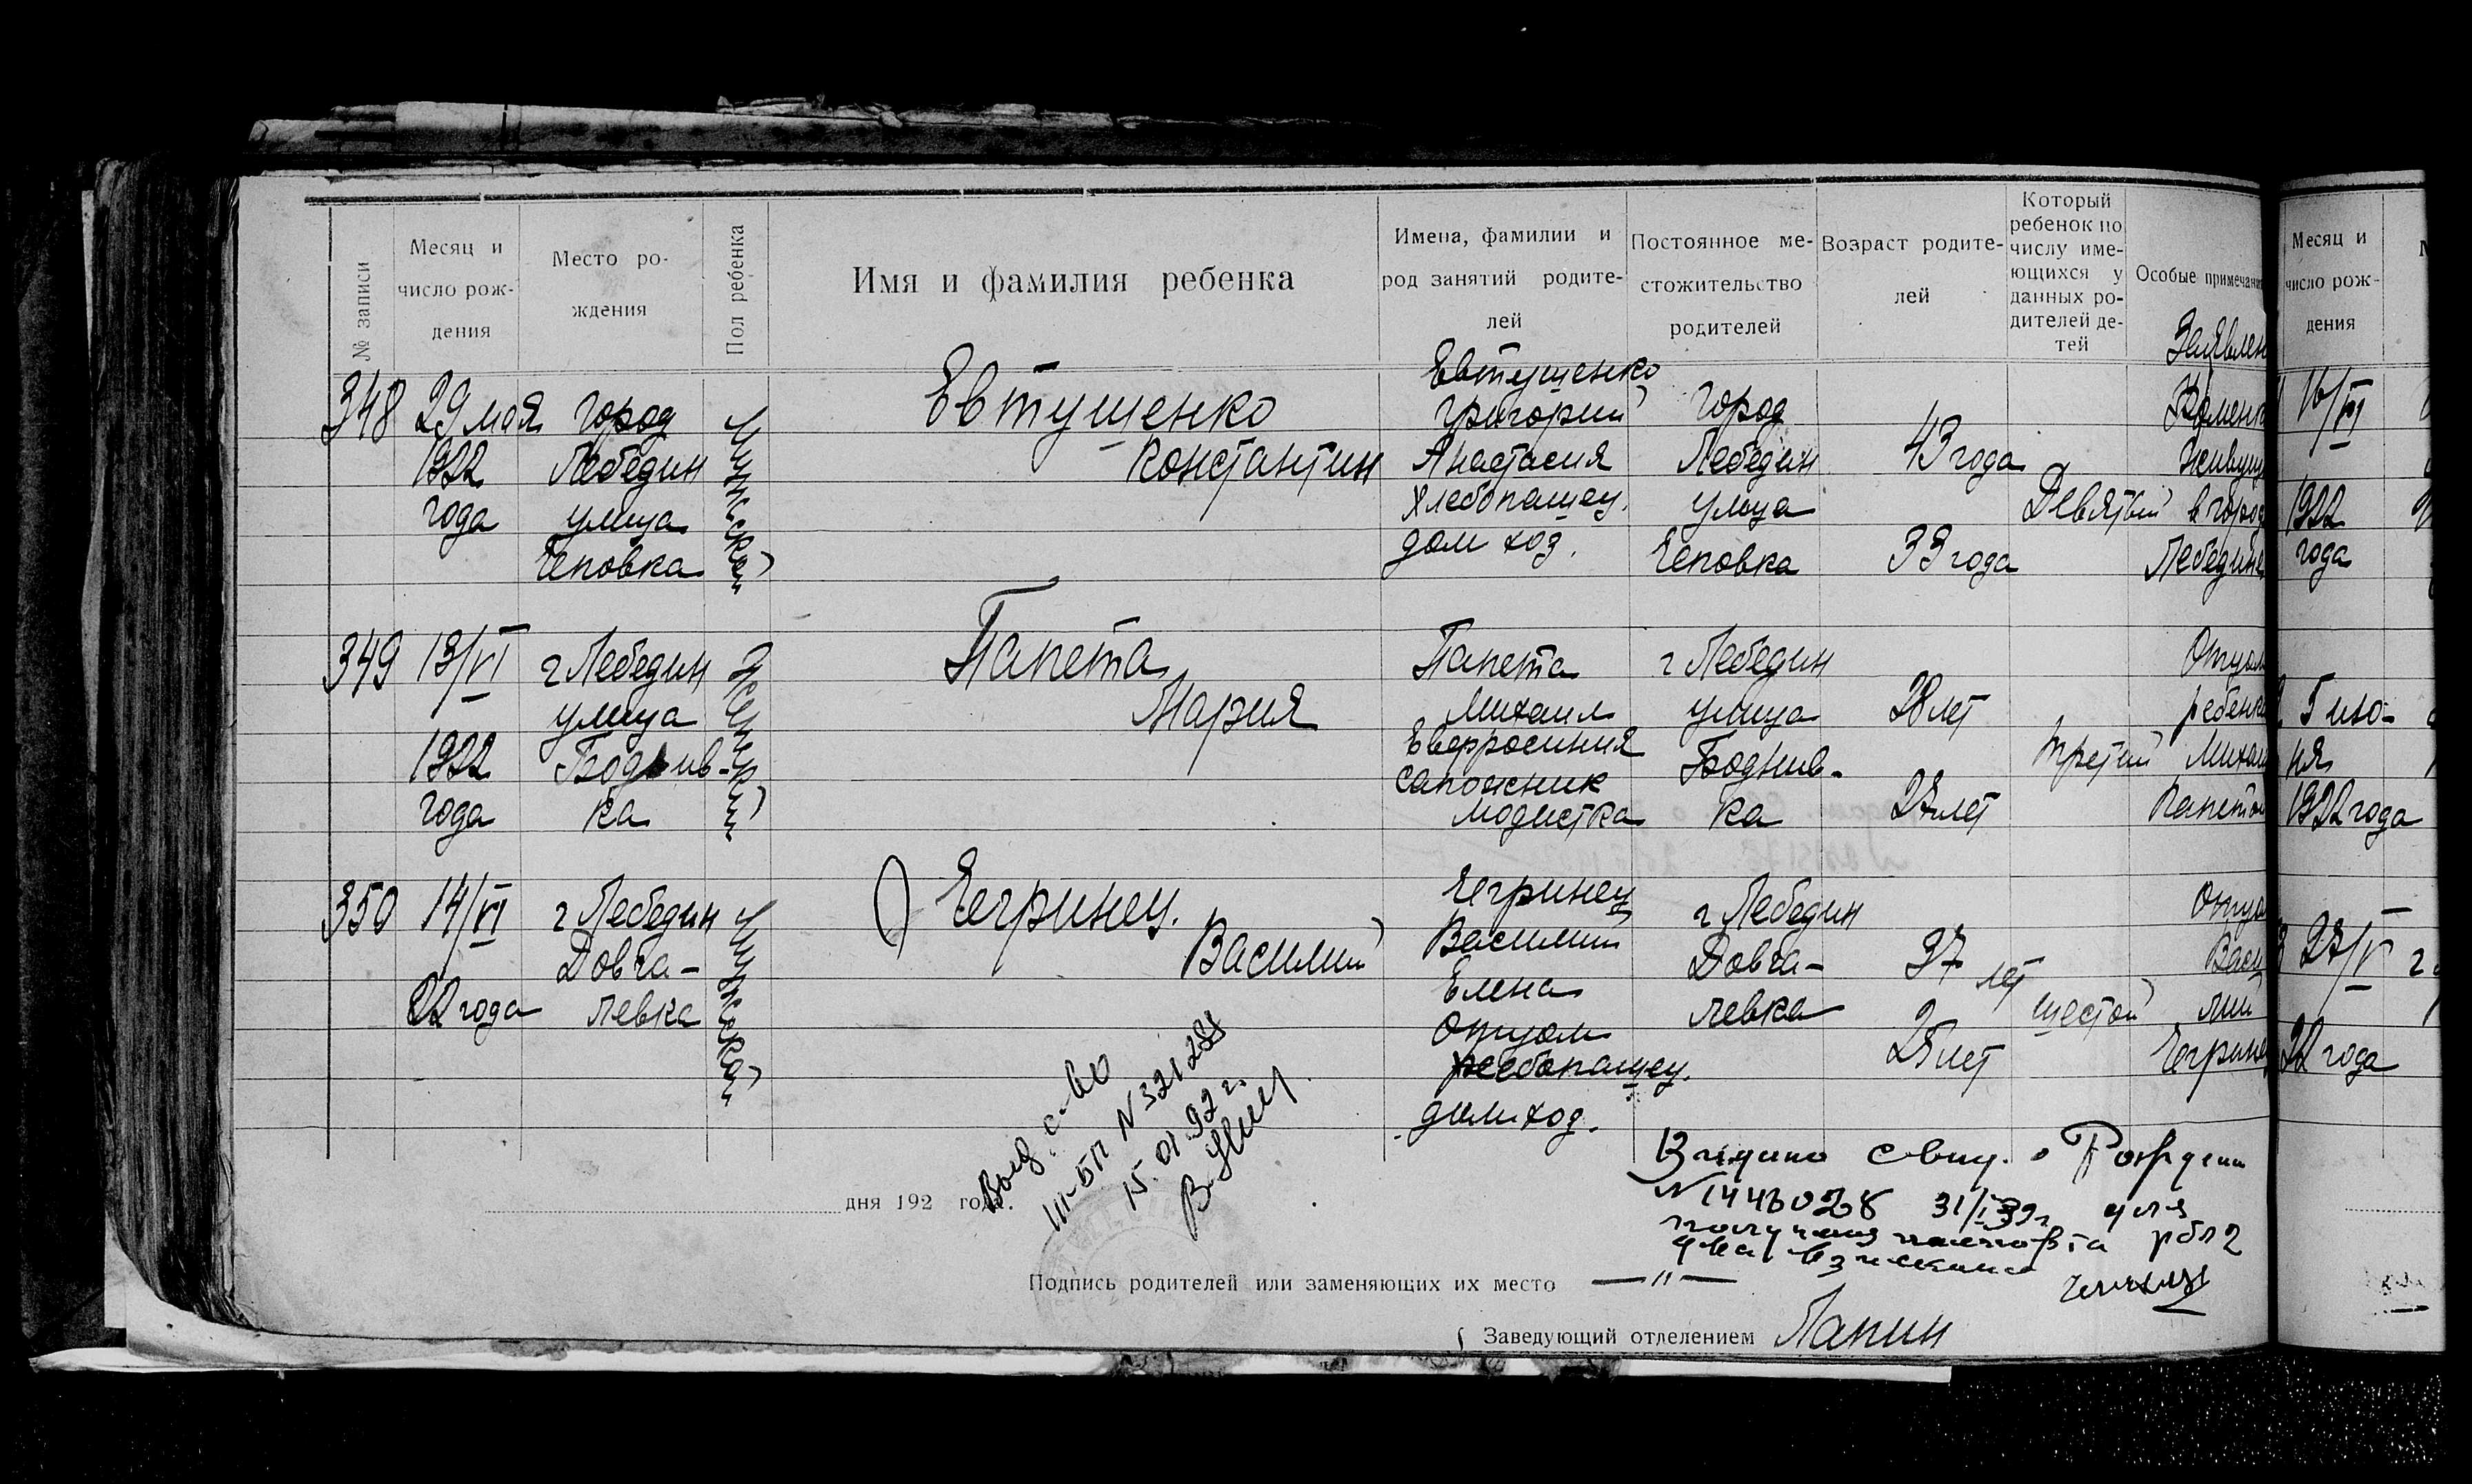 № записи
Месяц и
число рож-
дения
Место ро-
ждения
Пол ребенка
Имя и фамилия ребенка
Имена, фамилии и
род занятий родите-
лей
Постоянное ме-
стожительство
родителей
Возраст родите-
лей
Который
ребенок по
числу име-
ющихся у
данных ро-
дителей де-
тей
Особые примечани
348
29 мая
1922
года
город
Лебедин
улица
Чеповка
Мужской
Евтушенко
Константин
Евтушенко
Григорий
Анастасия
хлебопашец.
дом хоз.
город
Лебедин
улица
Чеповка
43 года
33 года
Девятый
Заявлен
живущ
в город
Лебедине
349
13/VI
1922
года
г Лебедин
улица
ка
Женский
Папета
Мария
Папета
Михаил
Евфросиния
сапожник
модистка
г Лебедин
улица
Боднив-
ка
28 лет
27 лет
третий
Отцом
ребенка
Михаи
Папетой
350
14/VI
22 года
г Лебедин
Довга-
левка
Мужской
Чегринец.
Василий
Чегринец
Василий
Елена
Отцом
хлебопашец.
дом хоз.
г Лебедин
Довга-
левка
37 лет
25 лет
шестой
Отцо
Васи
лий
Чегрине
Выд. с-во
III-БП N 321288
15.01.92 г.
дня 192 года.
Выдано свид. о Рожден
31/I 39г для
получения паспорта рбл 2
два взискано
Подпись родителей или заменяющих их место —"—
Заведующий отделением Лапин
Месяц и
число рож-
дения
16/VI
1922
года
5 июн-
ня
1922 года
27/V
22 года